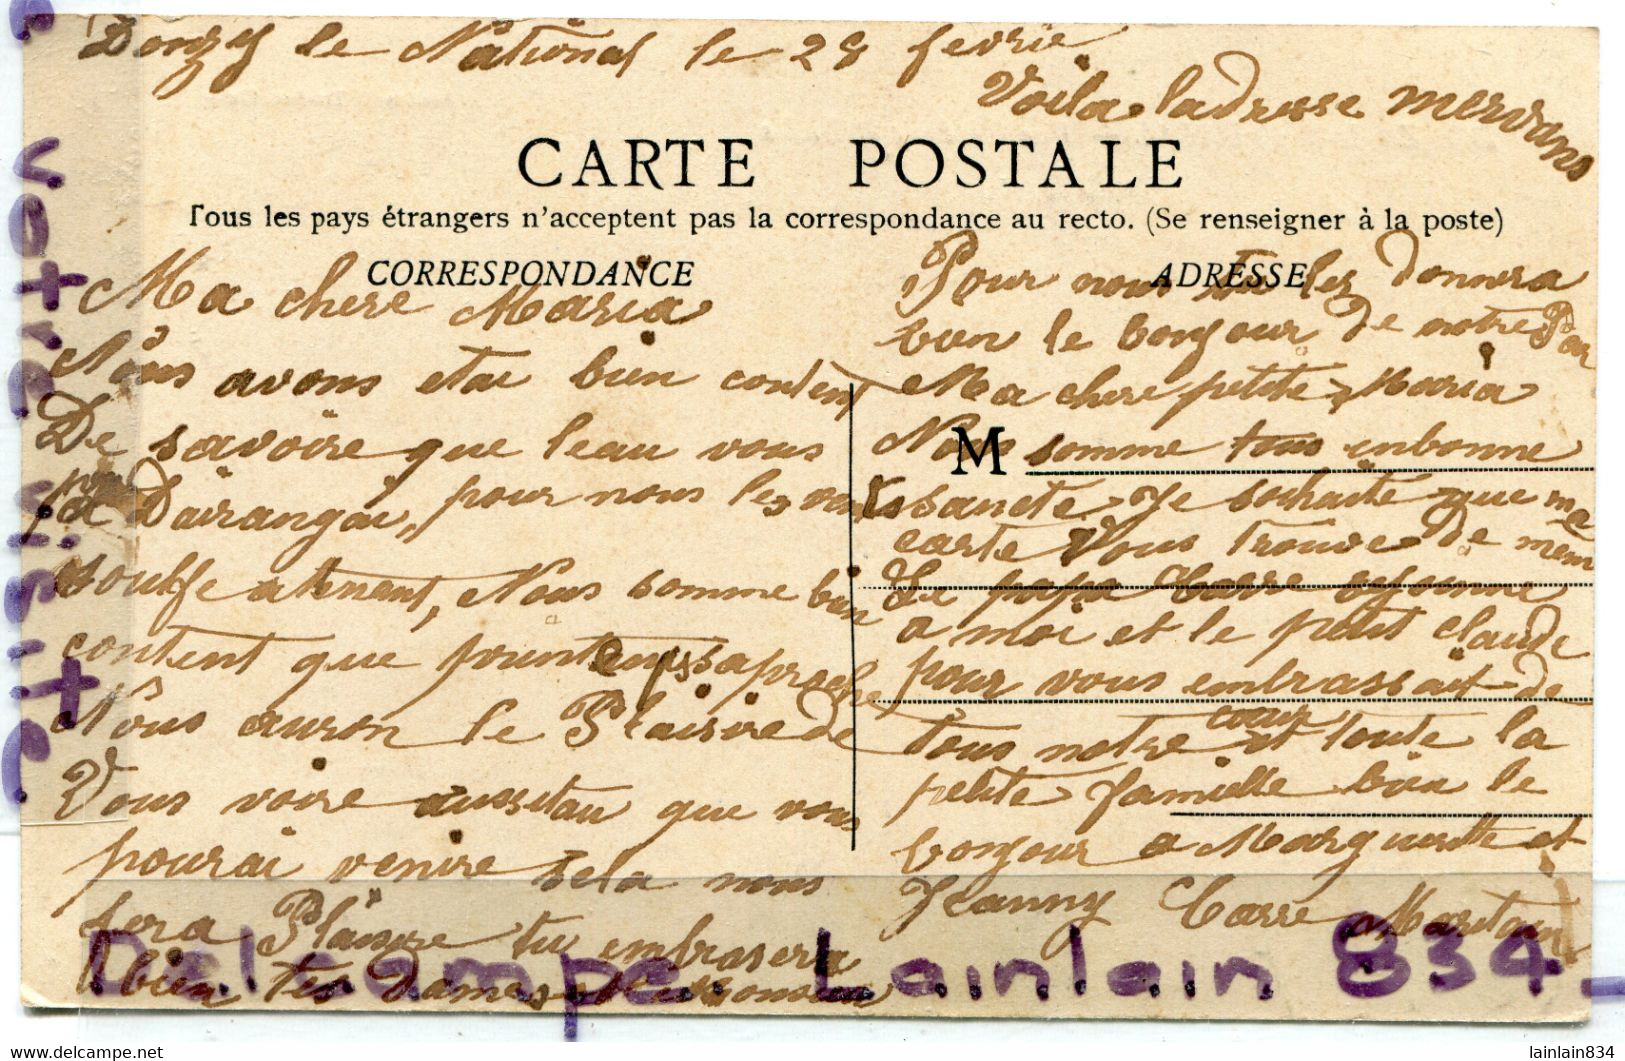 Donzy le National le 28 fevrie
Voila ladresse mervans
CARTE POSTALE
Tous les pays étrangers n'acceptent pas la correspondance au recto. (Se renseigner à la poste)
CORRESPONDANCE
Ma chere Maria
Nous avons etai bien content
De savoire que leau vous
pas Dairangai, pour nous les
souffle atenant, Nous somme bien
content que printemps saproche
Nous auron le Plaisire de
Vous voire aussitau que vous
pourai venire sela nous
fera Plaisire tu embrasera
bien tes Dames
ADRESSE
Pour nous tu les donnera
bien le bonjour de notre Par
Ma chere petite Maria
M
Nous somme tous enbonne
sancte Je souhaite que ma
carte Vous trouve De mem
Le papa Carre
a moi et le petit claude
pour vous embrassait de
tous notre coeur et toute la
petite famille bien le
bonjour a Marguerite et
Jeanny Carre Maritain
votre visite
Delcampe. Lainlain 834.
www.delcampe.net
lainlain834